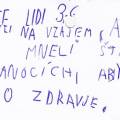 E LIDI
ZI NA VZÁJEM, A
MNELI ŠT
ANOCÍCH, ABY
O ZDRAVJE.